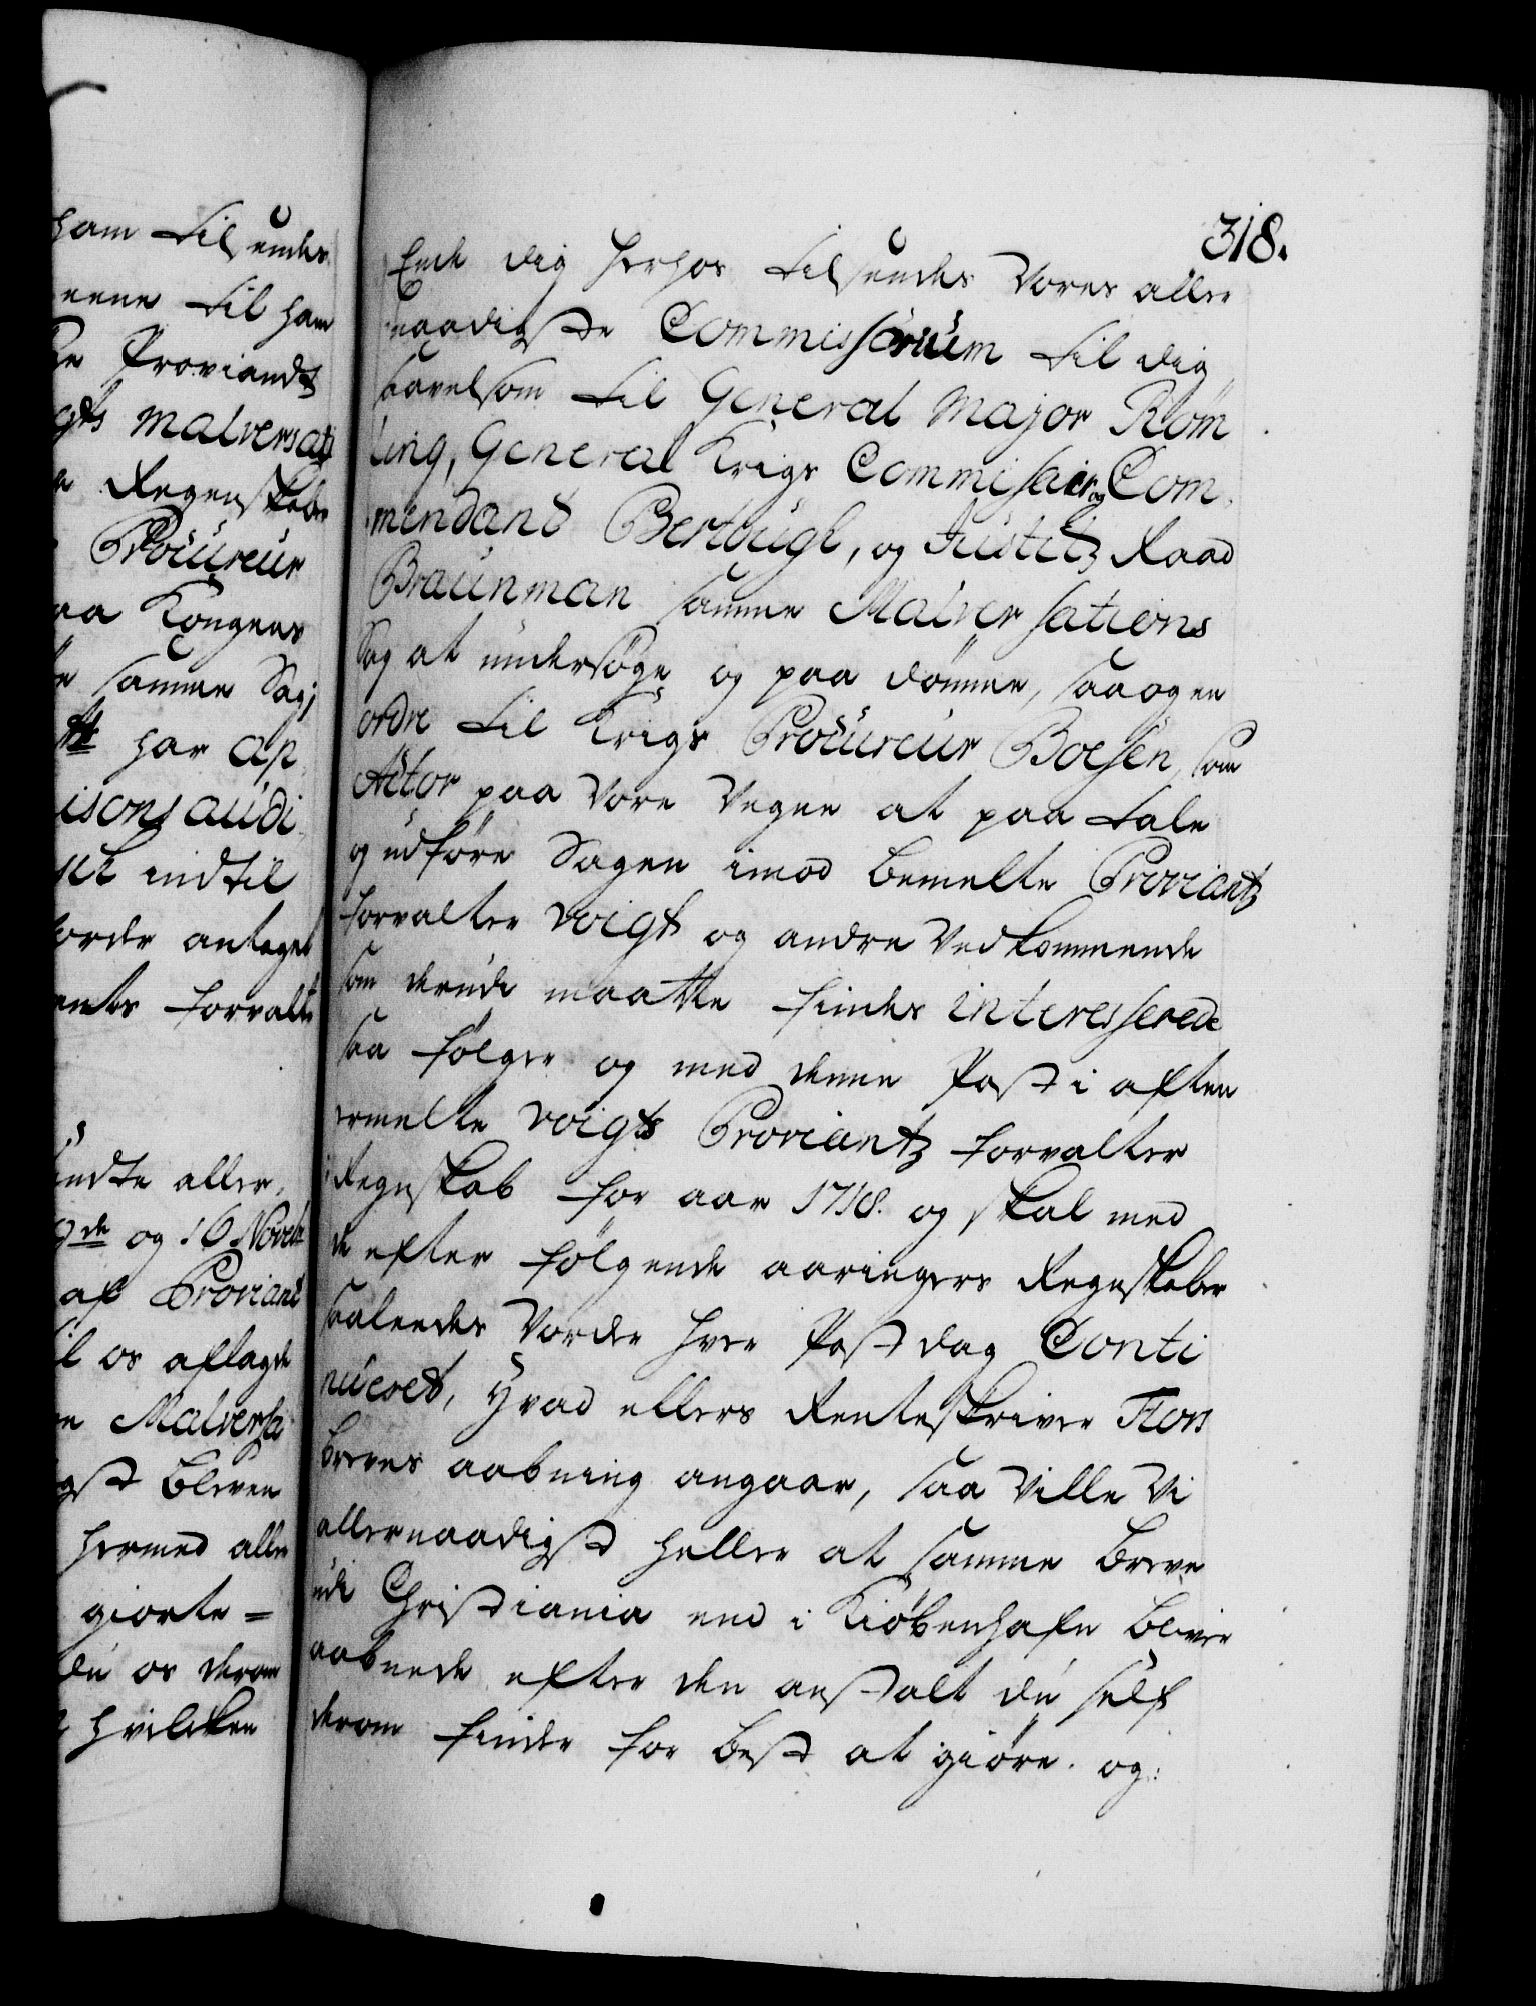 ham tilsendes
eene til ham
Proviandt
gts Malversati
Regenskaber
Procureur
paa Kongens
samme Sag,
har ap
isons audi
indtil
vorder antaget
forvalt
sendte aller
9de og 16 Novembr
af Proviant
os aflagde
Malversa
bleven
hermed aller
giorte =
du os derom
hvilcken
318.
Ende dig herhos tilsendes Vores aller
naadigste Commissorium til dig
saavelsom til General Major Röm
ling, General Krigs Commissair og Com
mendant Bertough, og Justitz Raad
Braunman samme Malversations
Sag at undersöge og paa dömme, saa og en
ordre til Krigs Procureur Boesen, som
Actor paa Vore Vegne at paa tale
og udföre Sagen imod bemelte Proviantz
forvalter Voigt og andre Vedkommende
som derudi maatte findes interesserede
saa fölger og med denne Post i aften
ermelte Voigts Proviantz forvalter
Regnskab for aar 1718. og skal med
de efter fölgende aaringers Regnskaber
saaleedes Vorde hver Postdag Conti
nueret, Hvad ellers Renteskriver Flors
breves aabning angaar, saa ville Vi
allernaadigst heller at samme breve
udi Christiania end i Kiöbenhafn bliver
aabnede efter den anstalt du self
derom finder for best at giöre. og